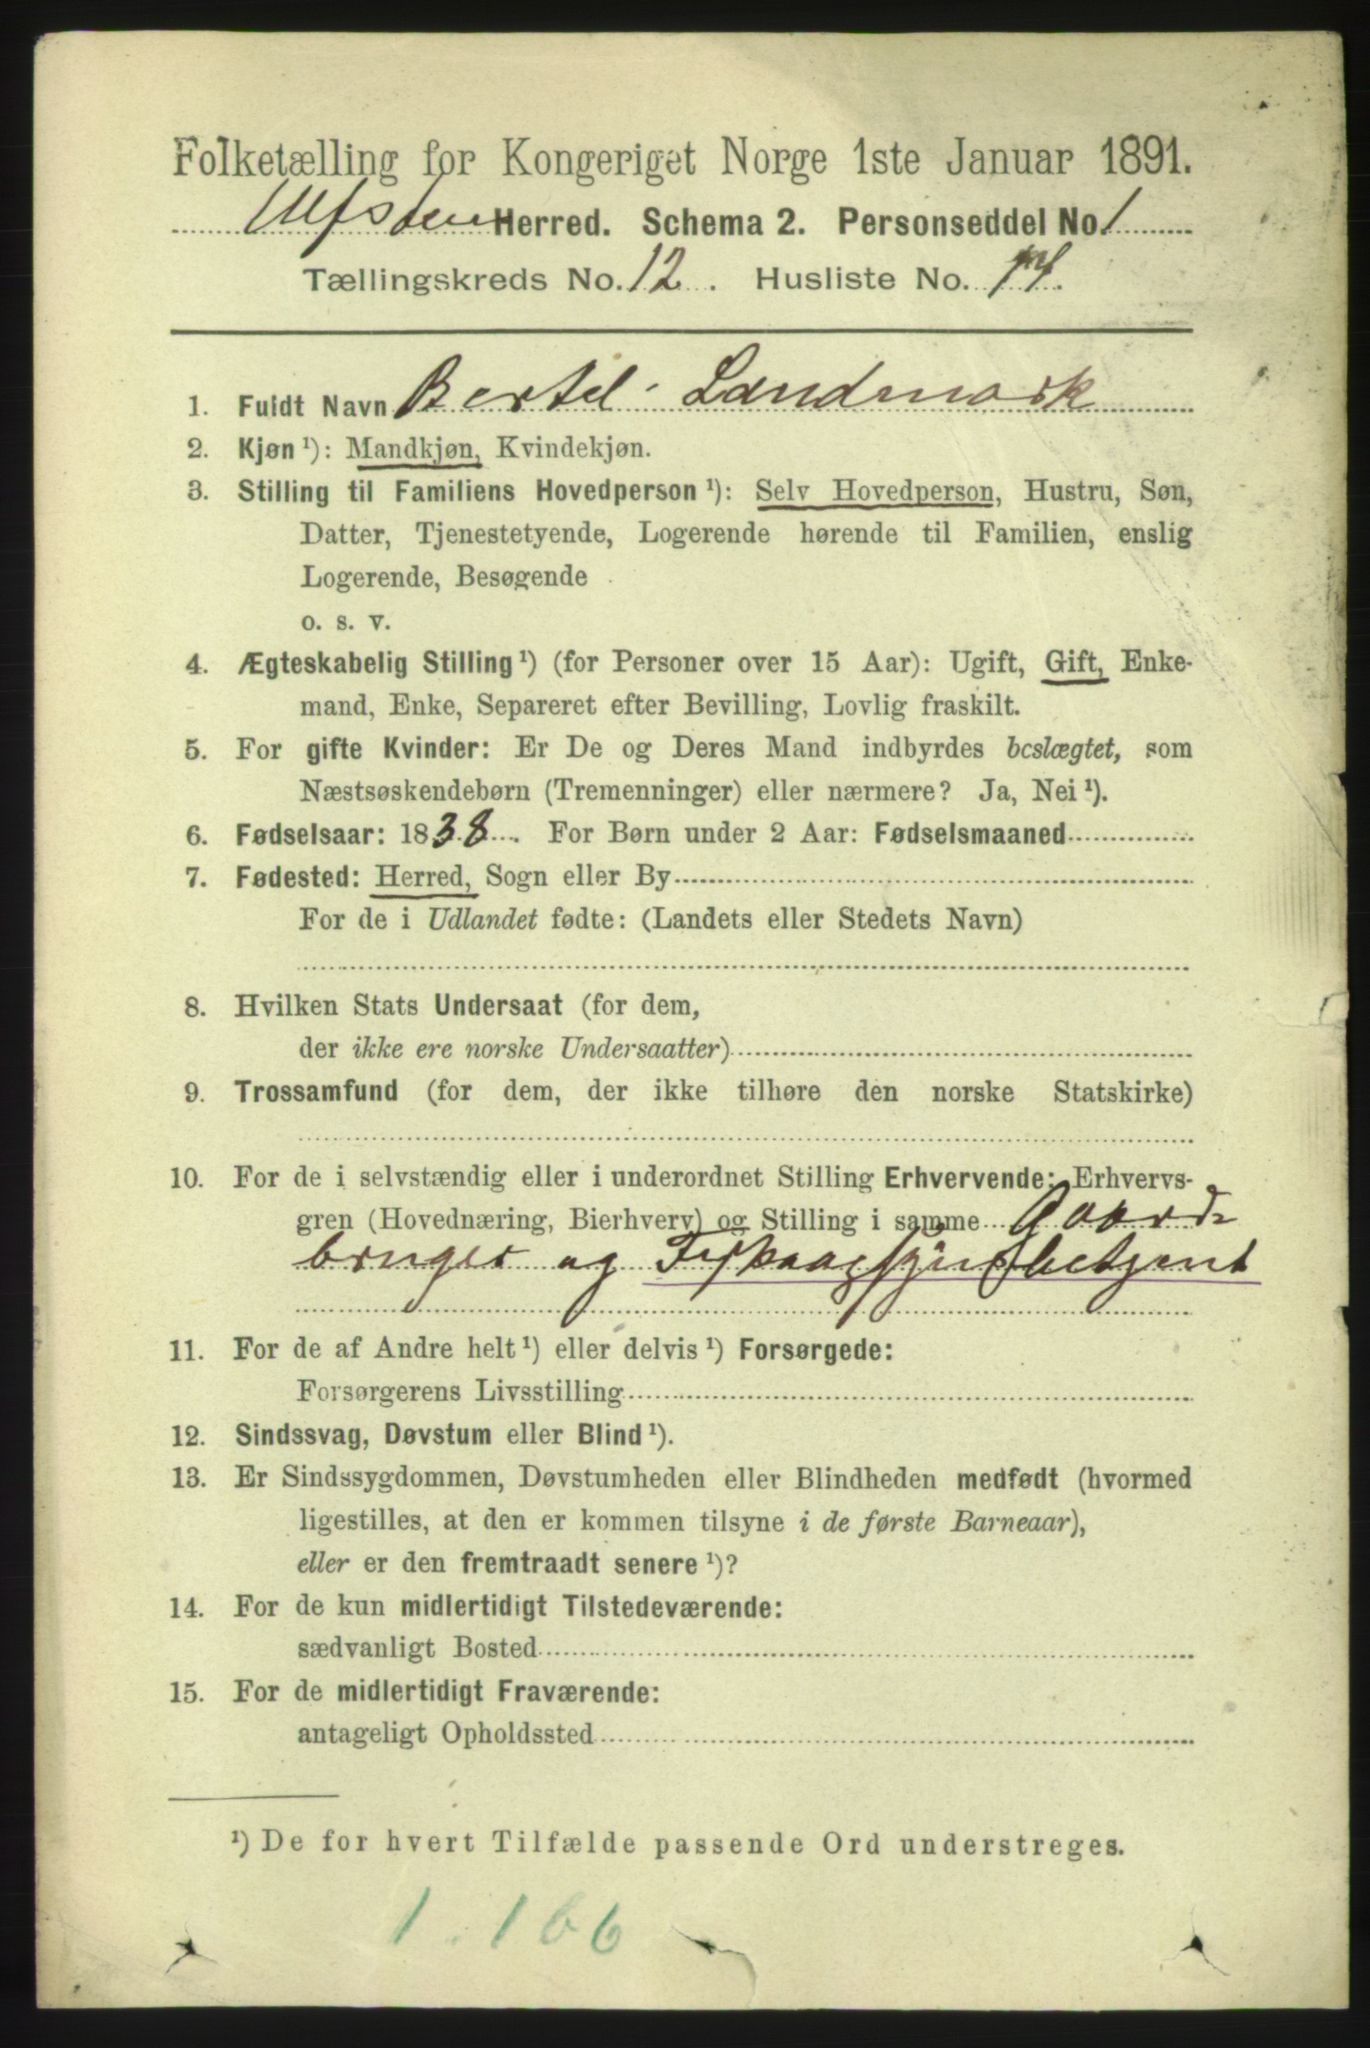 Folketælling for Kongeriget Norge 1ste Januar 1891.
Ulfsten Herred. Schema 2. Personseddel No. 1
Tællingskreds No. 12. Husliste No. 14.
1. Fuldt Navn Bertel Landmark
2. Kjøn ¹): Mandkjøn, Kvindekjøn.
3. Stilling til Familiens Hovedperson ¹): Selv Hovedperson, Hustru, Søn,
Datter, Tjenestetyende, Logerende hørende til Familien, enslig
Logerende, Besøgende
o. s. v.
4. Ægteskabelig Stilling ¹) (for Personer over 15 Aar): Ugift, Gift, Enke-
mand, Enke, Separeret efter Bevilling, Lovlig fraskilt.
5. For gifte Kvinder: Er De og Deres Mand indbyrdes beslægtet, som
Næstsøskendebørn (Tremenninger) eller nærmere? Ja, Nei ¹).
6. Fødselsaar: 1838. For Børn under 2 Aar: Fødselsmaaned
7. Fødested: Herred, Sogn eller By
For de i Udlandet fødte: (Landets eller Stedets Navn)
8. Hvilken Stats Undersaat (for dem,
der ikke ere norske Undersaatter)
9. Trossamfund (for dem, der ikke tilhøre den norske Statskirke)
10. For de i selvstændig eller i underordnet Stilling Erhvervende: Erhvervs-
gren (Hovednæring, Bierhverv) og Stilling i samme Gaard
bruger og
11. For de af Andre helt ¹) eller delvis ¹) Forsørgede:
Forsørgerens Livsstilling
12. Sindssvag, Døvstum eller Blind ¹).
13. Er Sindssygdommen, Døvstumheden eller Blindheden medfødt (hvormed
ligestilles, at den er kommen tilsyne i de første Barneaar),
eller er den fremtraadt senere ¹)?
14. For de kun midlertidigt Tilstedeværende:
sædvanligt Bosted
15. For de midlertidigt Fraværende:
antageligt Opholdssted
¹) De for hvert Tilfælde passende Ord understreges.
1.166